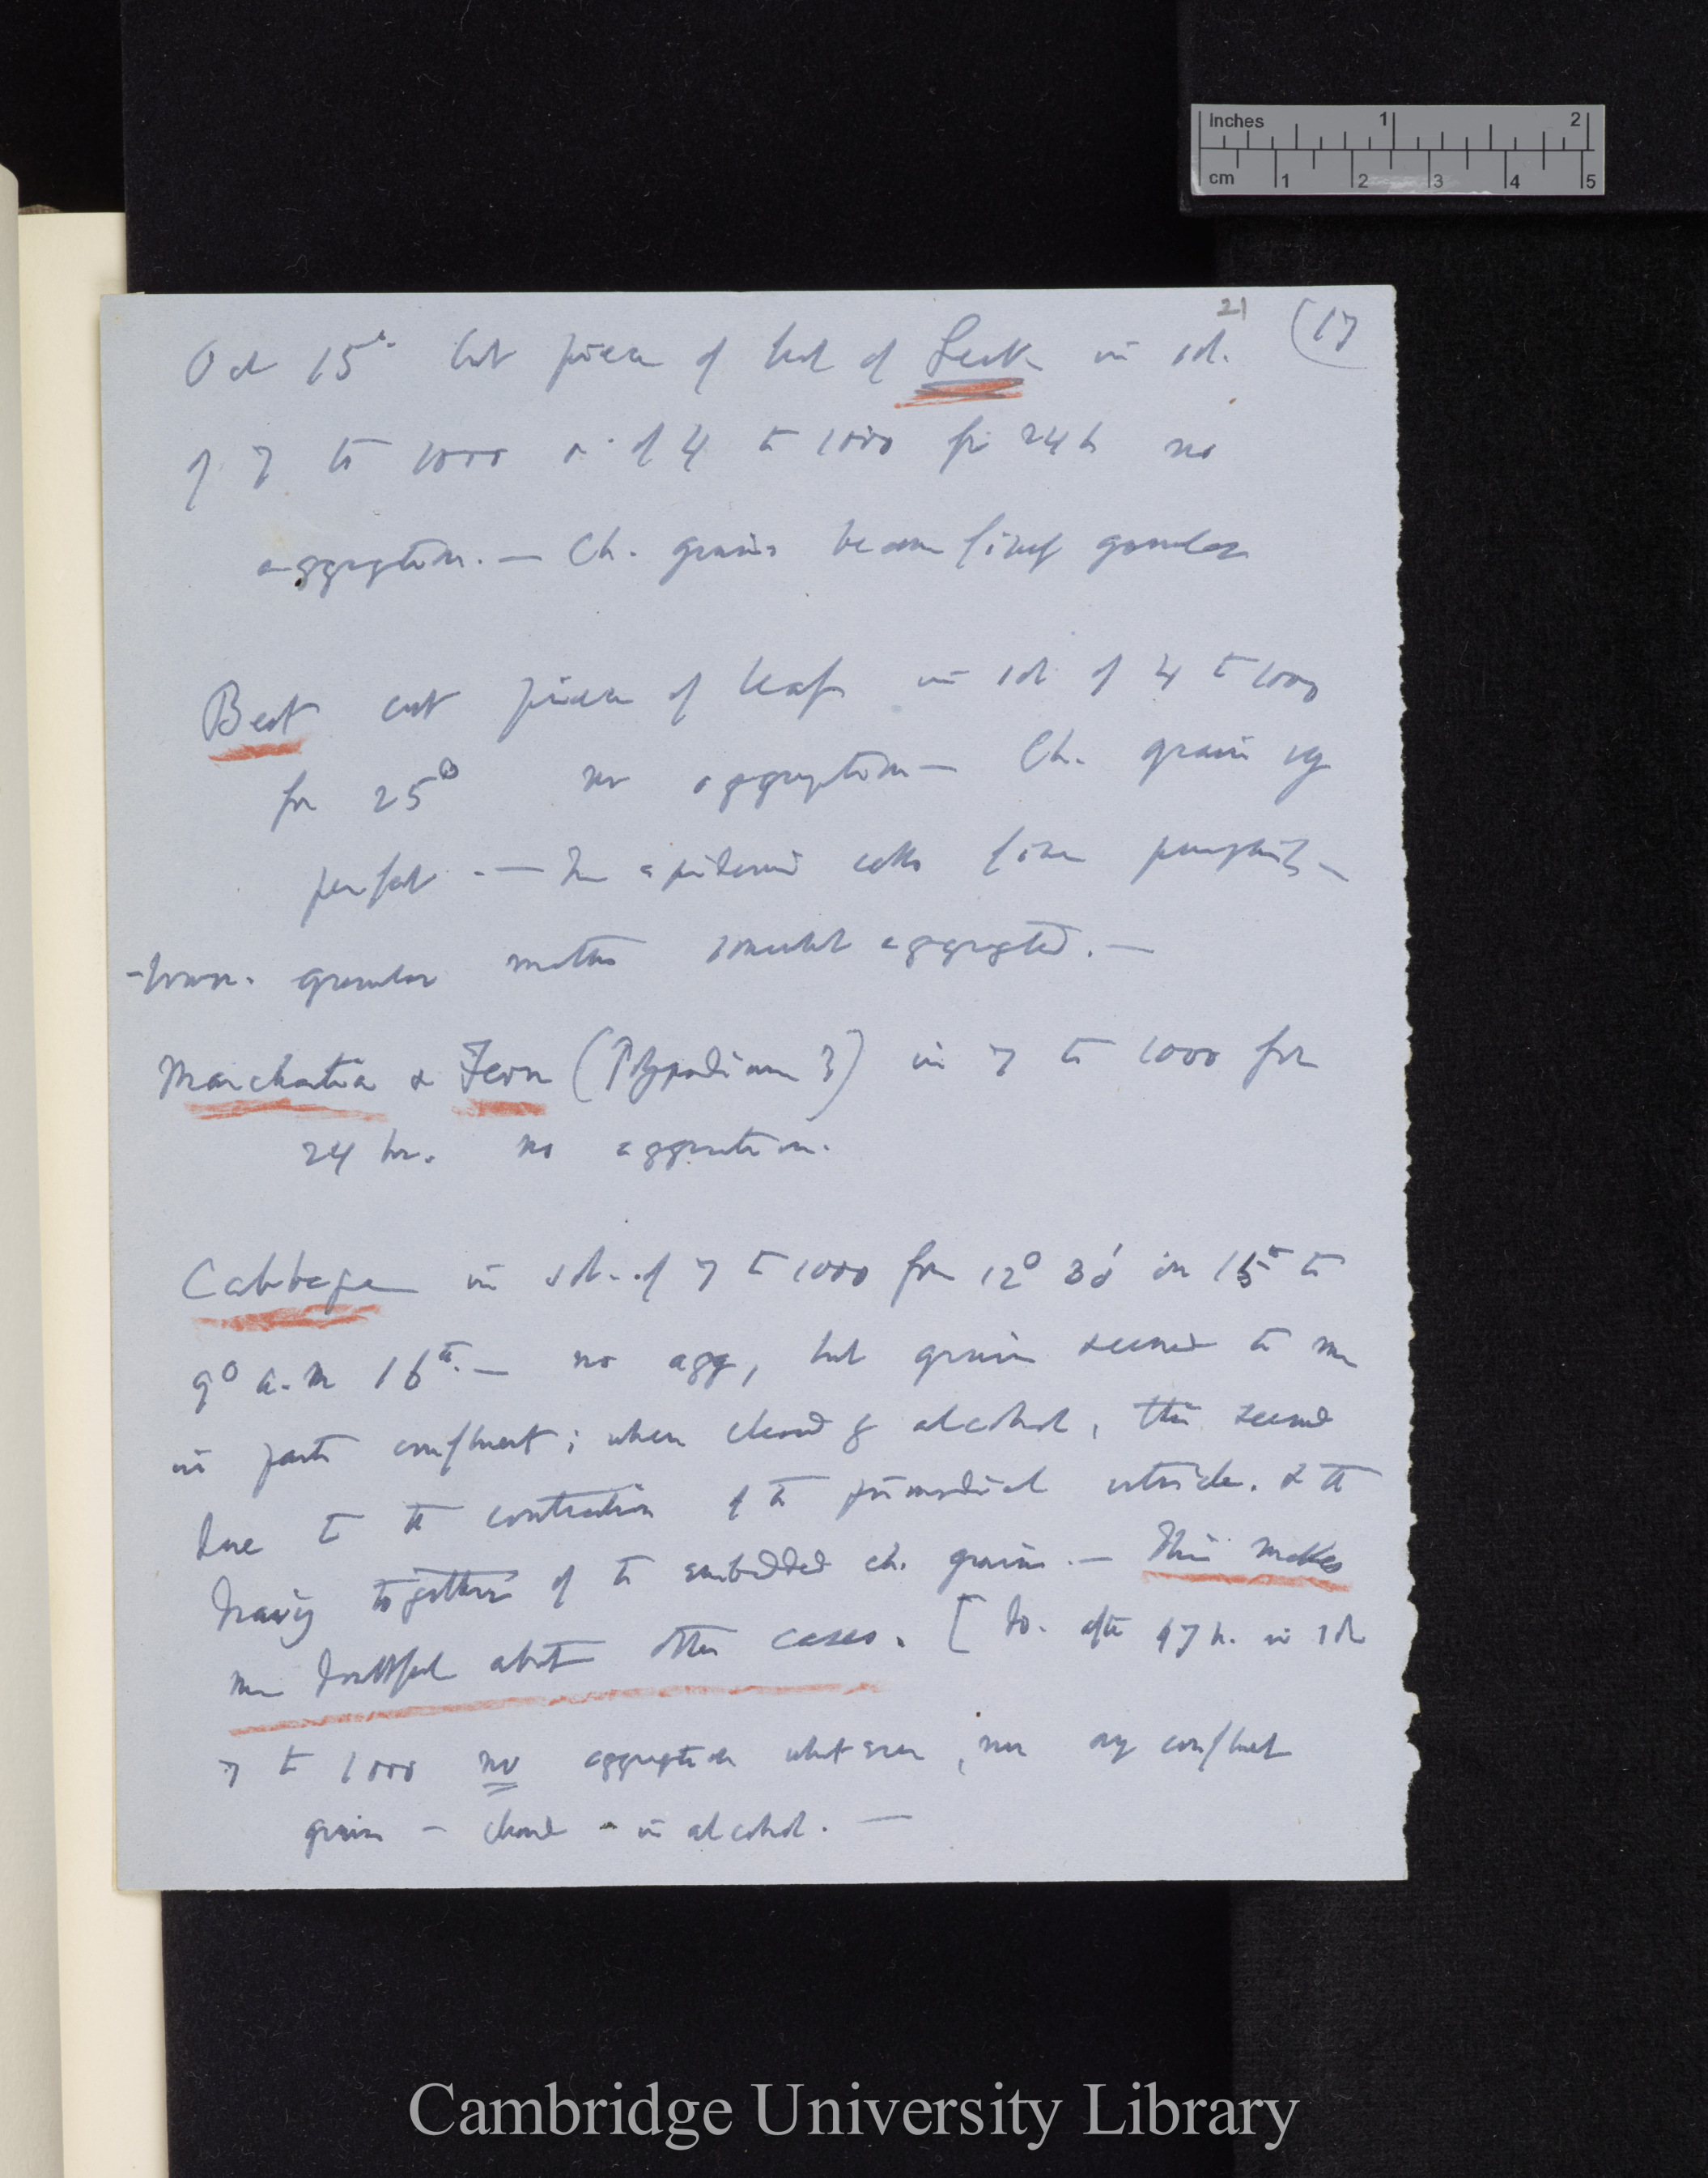 Inches 1 2
cm 1 2 3 4 5
21 (17
Oct 15th Cut pieces of leaf of Leek in sol.
of 7 to 1000 & of 4 to 1000 for 24 h no
aggregation. — Ch. grains became finely granular
Beet cut pieces of leaf in sol of 4 to 1000
for 25° no aggregation — Ch. grains
perfect. — In epidermic cells fine
-brown. granular matter somewhat aggregated. —
Marchantia & Fern (Polypodium ?) in 7 to 1000 for
24 hr. no aggregation.
Cabbage in sol. of 7 to 1000 for 12° 30' on 15th to
9° a.m 16th. — no agg, but grains seemed to me
in parts confluent; when cleared by alcohol, this seemed
due to the contraction of the primordial utricle. & the
drawing together of the embedded ch. grains. — This makes
me doubtful about other cases. [Do. after 47 h. in sol
7 to 1000 no aggregation whatever, nor any confluent
grains — cleared in alcohol. —
Cambridge University Library